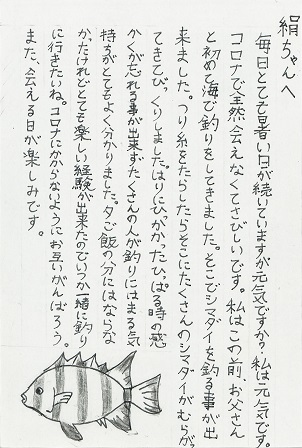 絹ちゃんへ
毎日とても暑い日が続いていますが元気ですか？私は元気です。
コロナで全然会えなくてさびしいです。私はこの前、お父さん
と初めて海で釣りをしてきました。そこでシマダイを釣る事が出
来ました。つり糸をたらしたらそこにたくさんのシマダイがむらが
てきてびっくりしました。はりにひっかかったひっぱる時の感
かくが忘れる事が出来ずたくさんの人が釣りにはまる気
持ちがとてもよく分かりました。夕ご飯の分にはならな
かったけれどとても楽しい経験が出来たのでいつか一緒に釣り
に行きたいね。コロナにかからないようにお互いがんばろう。
また、会える日が楽しみです。